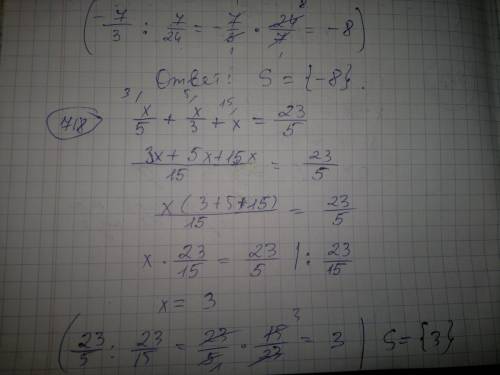 (-7/3 : 7/24 = -7/3 · 24/7 = -8)
Ответ: S = {-8}.
718 x/5 + x/3 + x = 23/5
(3x + 5x + 15x)/15 = 23/5
x(3+5+15)/15 = 23/5
x · 23/15 = 23/5 | : 23/15
x = 3
(23/5 : 23/15 = 23/5 · 15/23 = 3) S = {3}